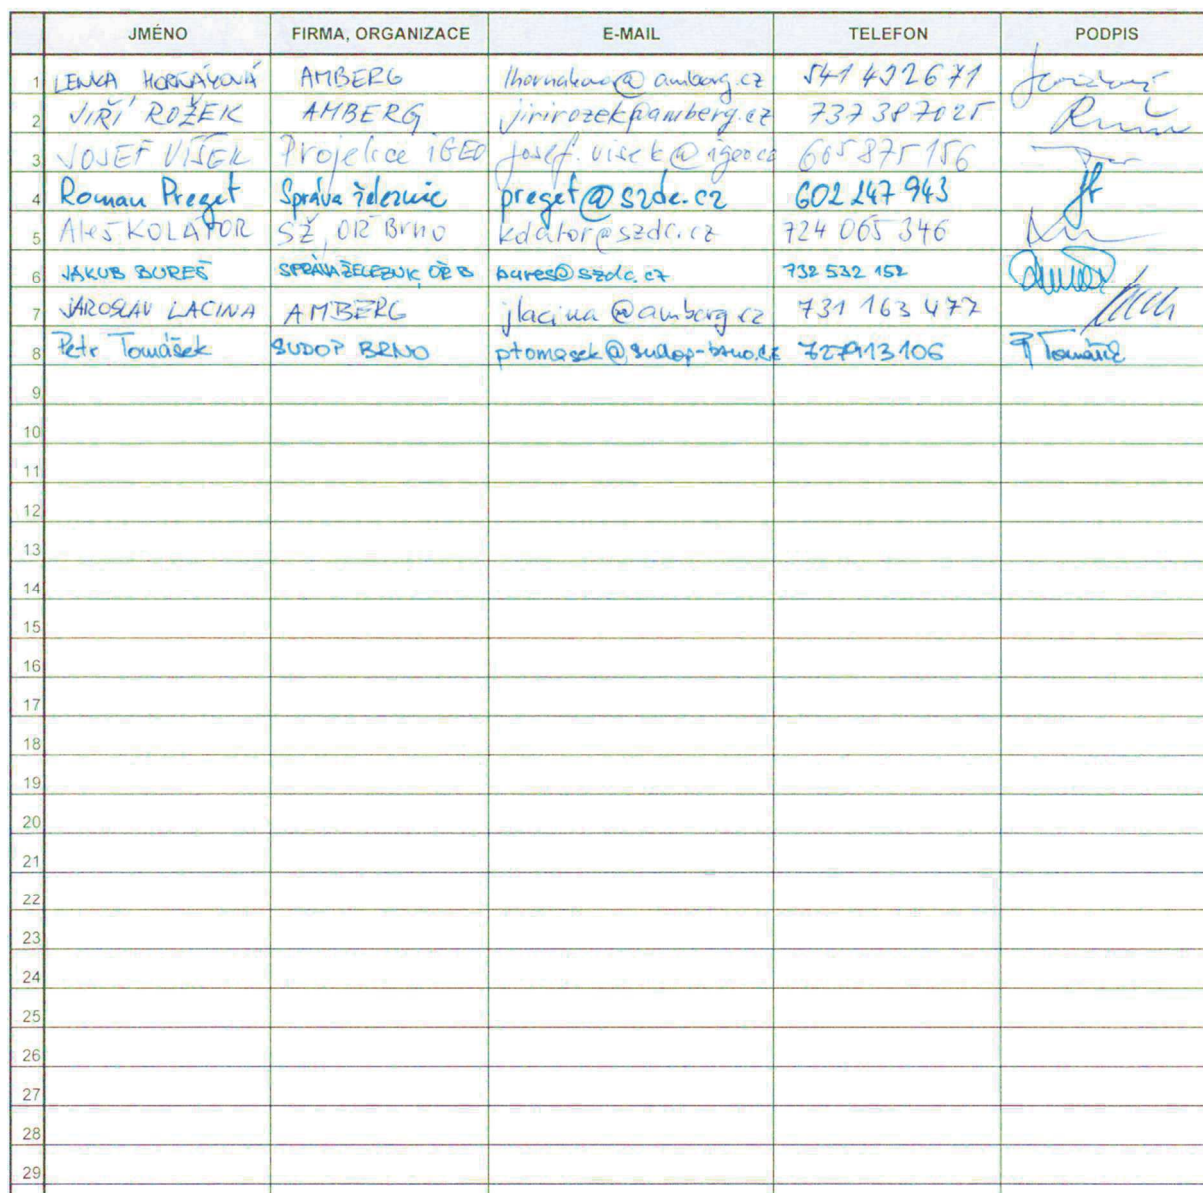 JMÉNO FIRMA, ORGANIZACE E-MAIL TELEFON PODPIS
1 LENKA AMBERG @amberg.cz 541 432 671
2 JIŘÍ ROŽEK AMBERG jirirozek@amberg.cz 737 387 025
3 JOSEF VÍŠEK iGEO josef.visek@igeo.cz 605 875 156
4 Roman Preget Správa železnic preget@szdc.cz 602 247 943
5 Aleš KOLATOR SŽ, OŘ Brno kolator@szdc.cz 724 065 346
6 JAKUB BUREŠ SPRÁVA ŽELEZNIC, OŘ B bures@szdc.cz 732 532 152
7 JAROSLAV LACINA AMBERG jlacina@amberg.cz 731 163 477
8 Petr Tomášek SUDOP BRNO ptomasek@sudop-brno.cz 727913106 P Tomášek
9
10
11
12
13
14
15
16
17
18
19
20
21
22
23
24
25
26
27
28
29